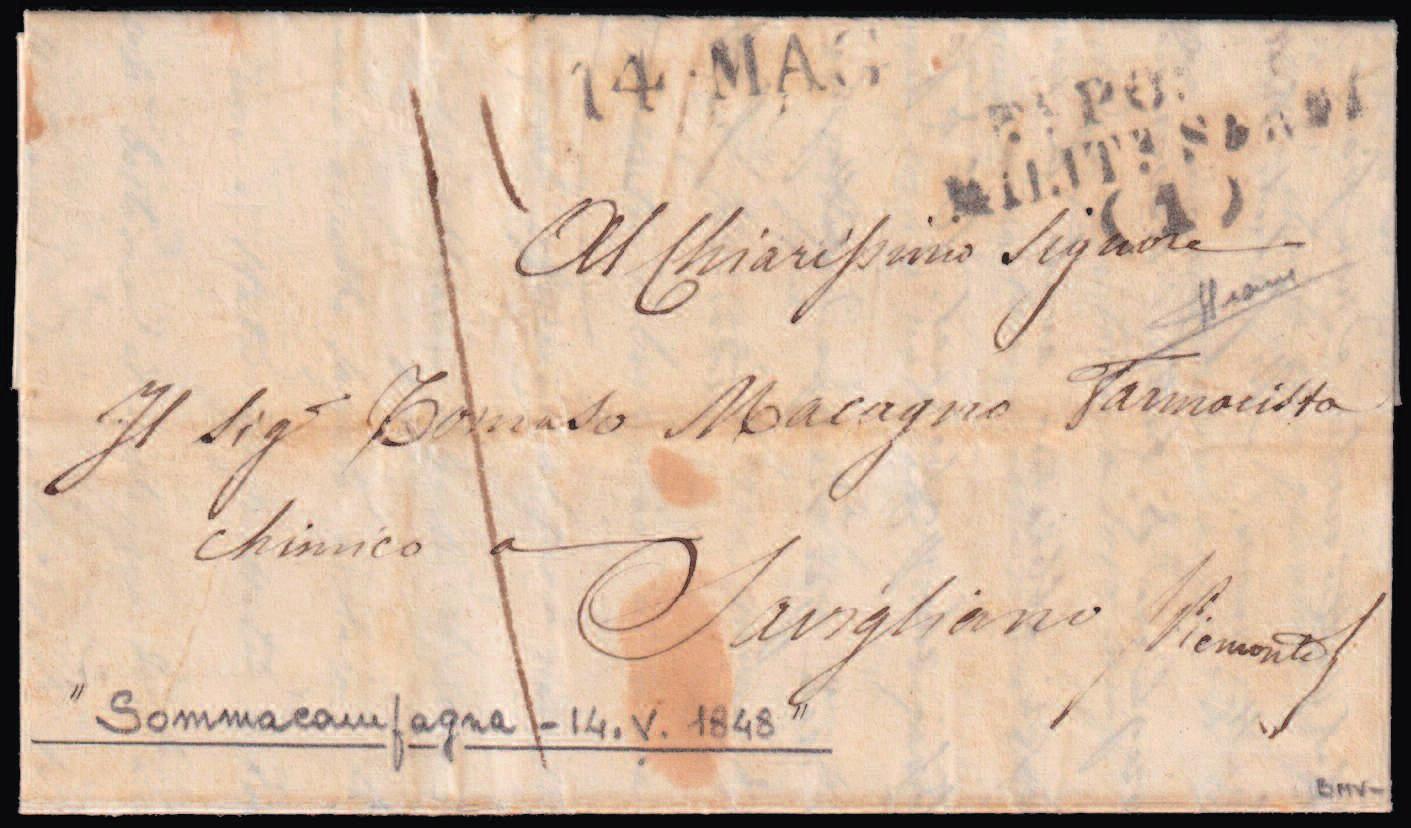 14 MAG
Rª PO:
MILITª SARDA
(1)
Al Chiarissimo Signore
Il Sigr Tomaso Macagno Farmacista
chimico a
Savigliano Piemonte
"Sommacampagna - 14. V. 1848"
BMV-